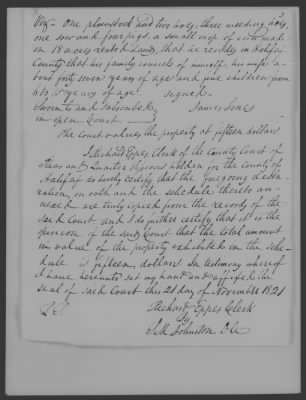 Viz. one plowstock and two hoes, three weeding hoes,
one sow and four pigs, a small crop of corn made
on 18 acres rented Land, that he resides in Halifax
County that his family consists of himself, his wife a-
bout forty seven years of age and five children from
to 5 years of age. Signed
Sworn to and Subscribed James Jones
in open Court
The court values the property at fifteen dollars
I Richard Eppes Clerk of the County Court of
Pleas and Quarter Sessions holden for the county of
Halifax do hereby certify that the foregoing decla-
ration, on oath and the schedule thereto an-
nexed are truly copied from the records of the
said Court, and I do further certify that it is the
opinion of the said Court that the total amount
in value of the property exhibited in the sche-
dule is fifteen dollars. In testimony whereof
I have hereunto set my hand and affixed the
seal of said Court this 21 day of November 1821
Richard Eppes Clerk
by
S. M. Johnston D C